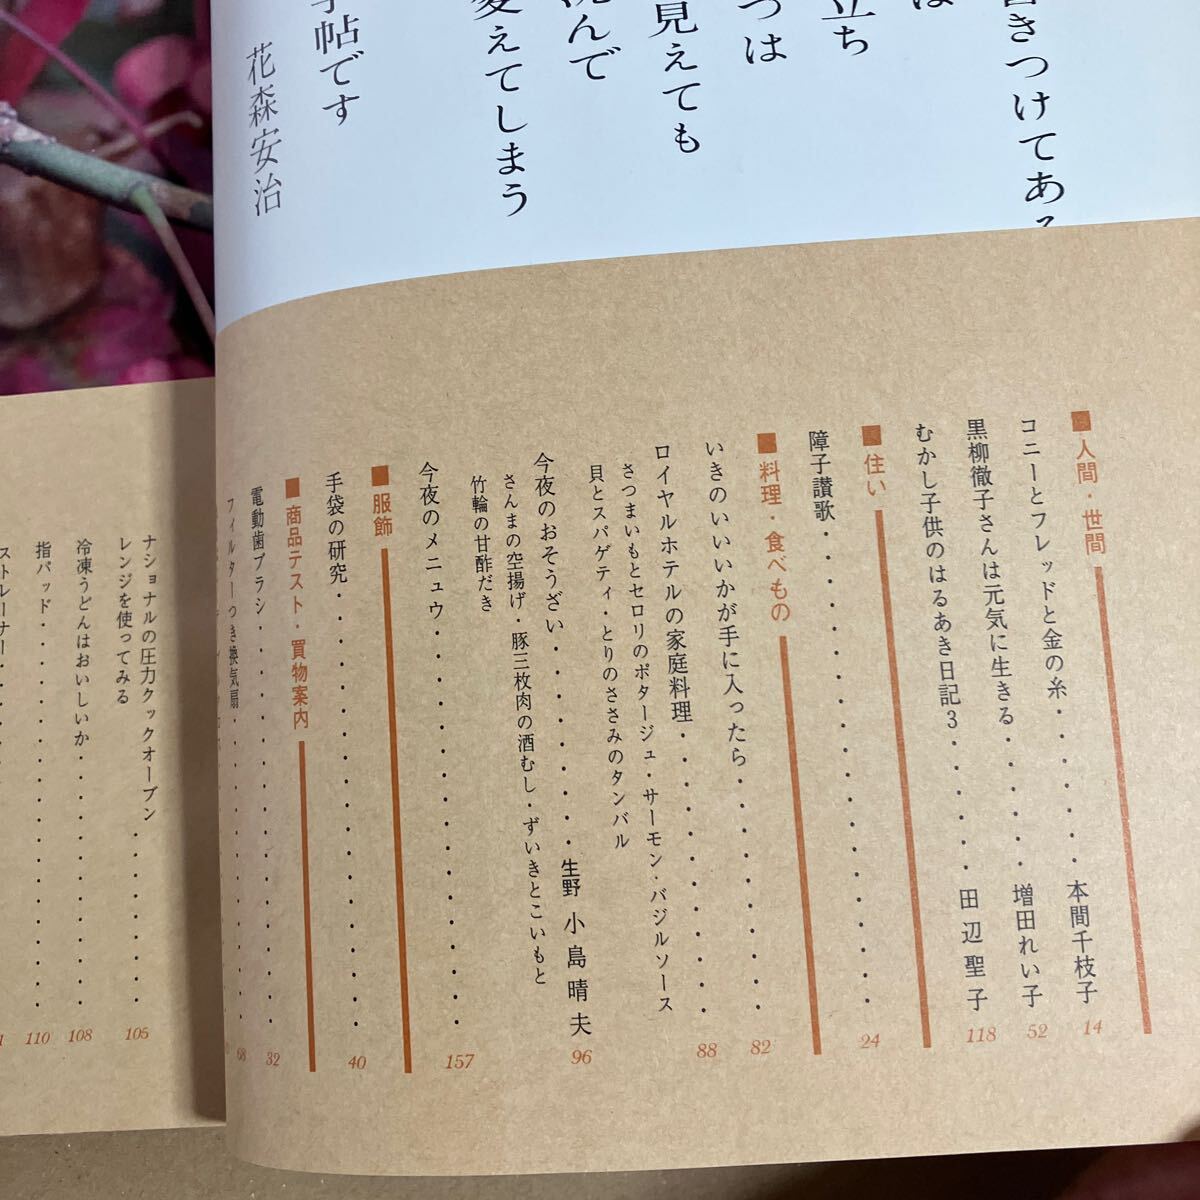 書きつけてある
は
立ち
つは
見えても
沈んで
変えてしまう
手帖です
花森安治
■人間・世間
コニーとフレッドと金の糸・・・・・・・・本間千枝子 14
黒柳徹子さんは元気に生きる・・・・・・・増田れい子 52
むかし子供のはるあき日記3・・・・・・・田辺聖子 118
■住い
障子讃歌・・・・・・・・・・・・・・・・24
■料理・食べもの
いきのいいいかが手に入ったら・・・・・・・・82
ロイヤルホテルの家庭料理・・・・・・・・・・88
さつまいもとセロリのポタージュ・サーモン・バジルソース
貝とスパゲティ・とりのささみのタンバル
今夜のおそうざい・・・・・・・・生野 小島晴夫 96
さんまの空揚げ・豚三枚肉の酒むし・ずいきとこいもと
竹輪の甘酢だき
今夜のメニュウ・・・・・・・・・・・・・・157
■服飾
手袋の研究・・・・・・・・・・・・・・・40
■商品テスト・買物案内
電動歯ブラシ・・・・・・・・・・・・・・・32
フィルターつき換気扇・・・・・・・・・・・68
ナショナルの圧力クックオーブン
レンジを使ってみる・・・・・・・・・・・105
冷凍うどんはおいしいか・・・・・・・・・108
指パッド・・・・・・・・・・・・・・・・110
ストレーナー